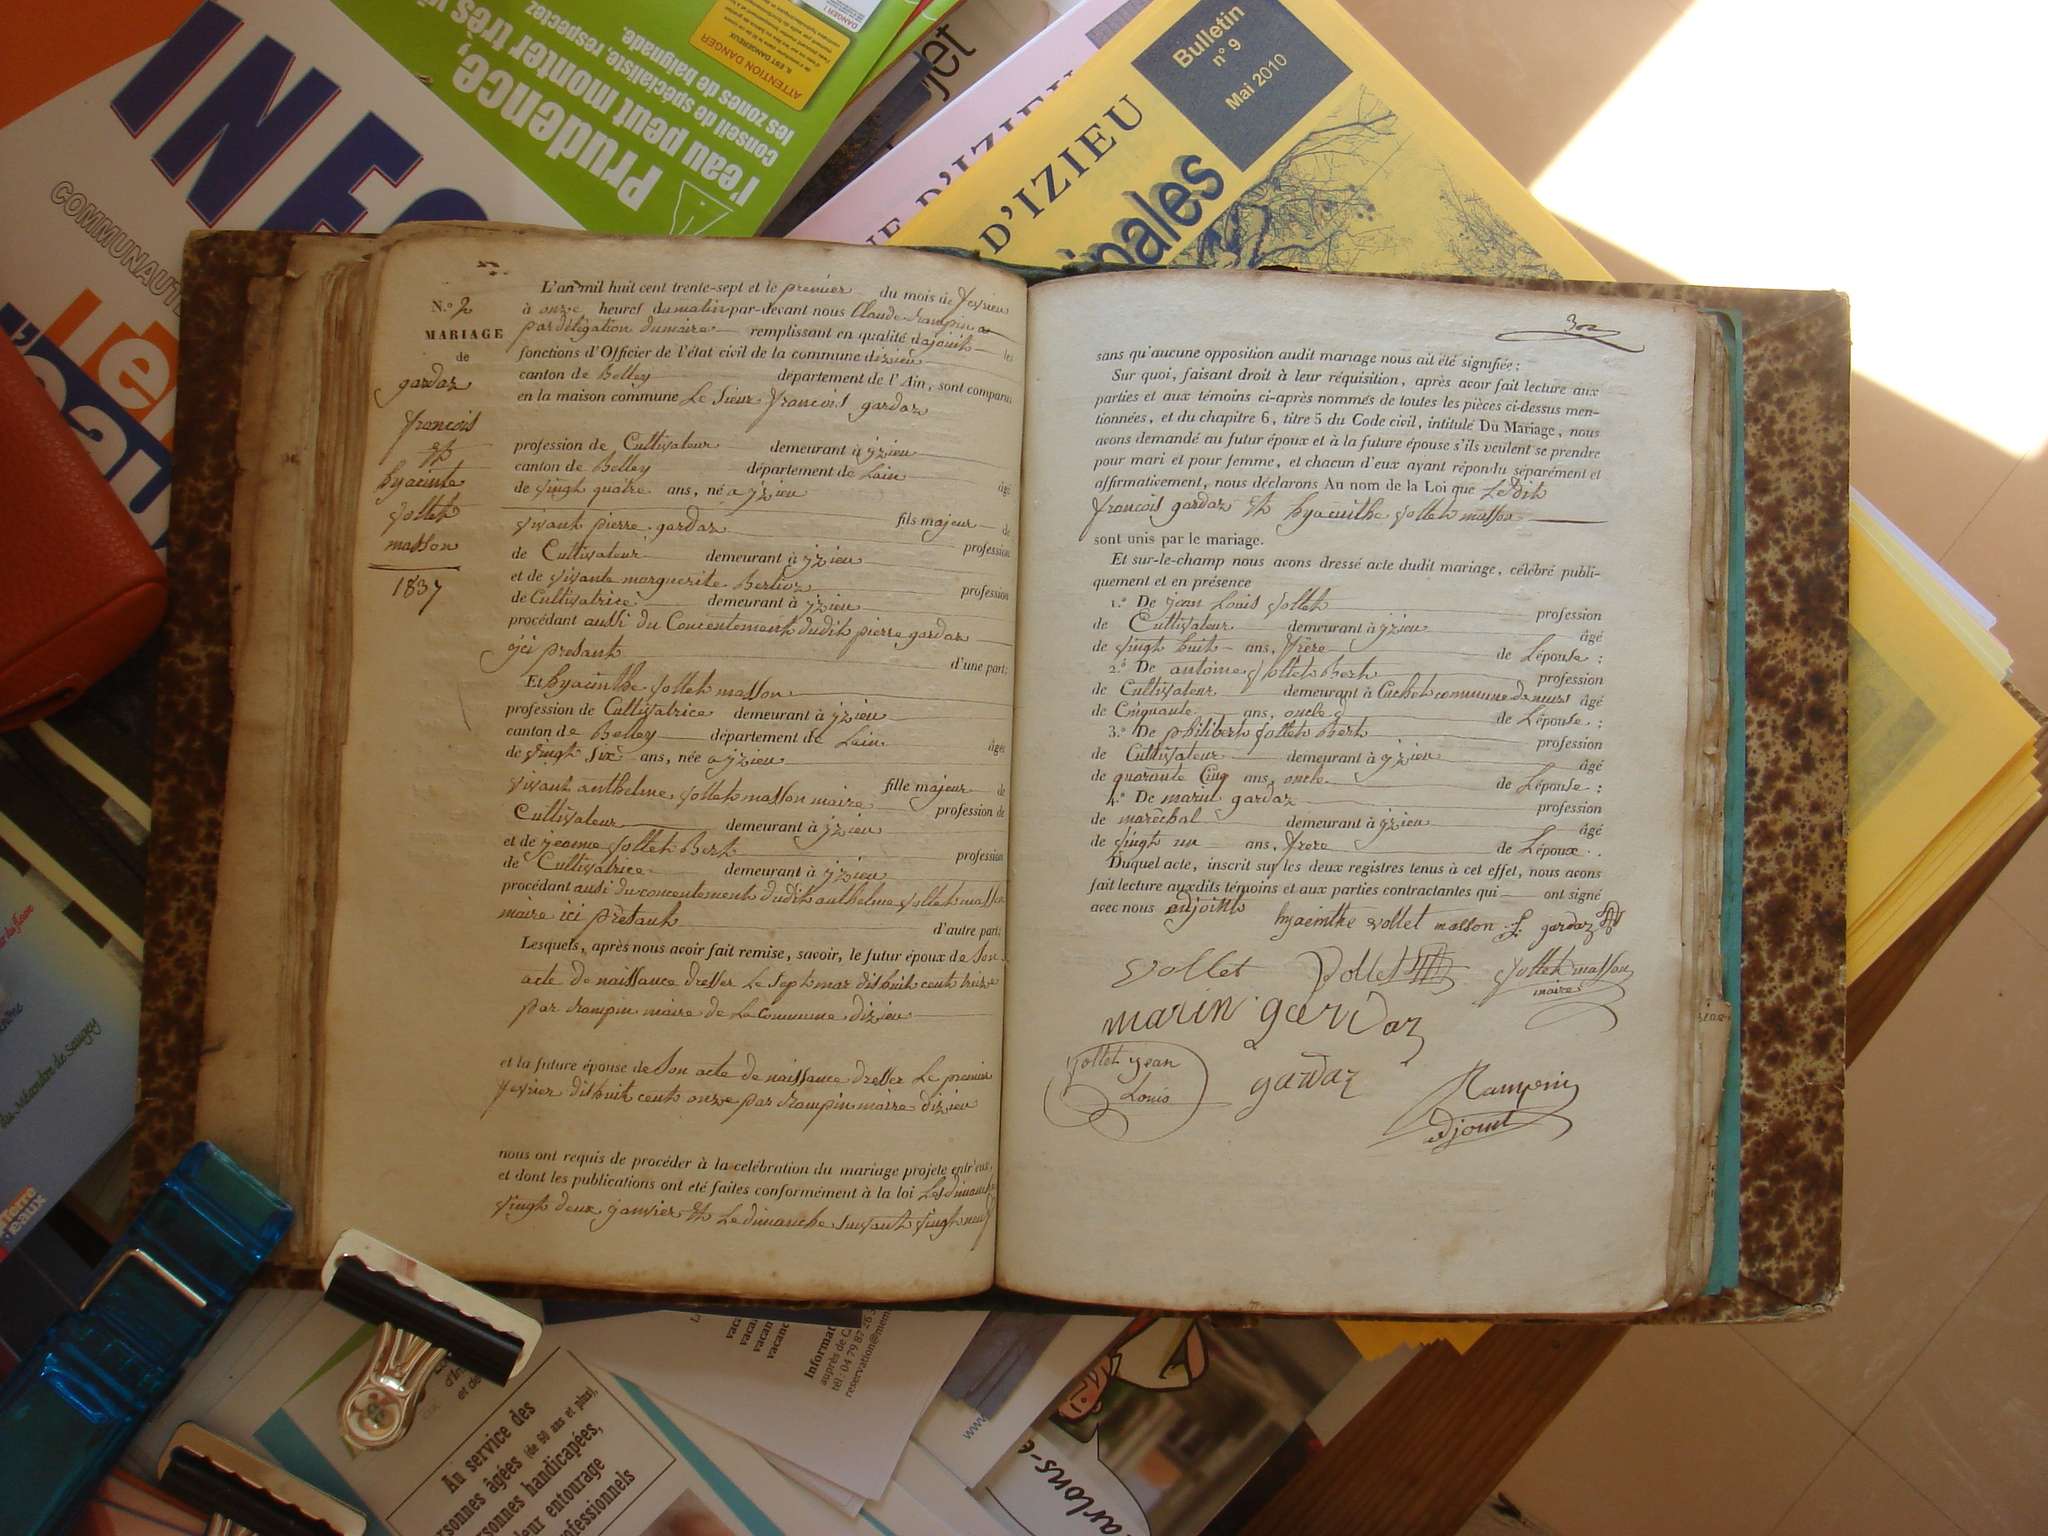 INFO
COMMUNAUTÉ
Prudence,
l'eau peut monter très vi
conseil de spécialiste, respectez
les zones de baignade.
ATTENTION DANGER
IL EST DANGEREUX
DANGER !
jet
NE D'IZIEU
D'IZIEU
ipales
Bulletin
n° 9
Mai 2010
N.o 2
MARIAGE
de
gardaz
françois
et
hyacinte
jollet
masson
1837
L'an mil huit cent trente-sept et le premier du mois de fevrier
à onze heures du matin par-devant nous Claude rampin a
par délégation du maire remplissant en qualité d'ajoint les
fonctions d'Officier de l'état civil de la commune dizieu
canton de Belley département de l'Ain, sont comparus
en la maison commune Le sieur françois gardaz
profession de Cultivateur demeurant à yzieu
canton de Belley département de Lain âgé
de vingt quatre ans, né a yzieu
fils majeur de
vivant pierre gardaz profession
de Cultivateur demeurant à yzieu
et de vivante marguerite Berlioz profession
de Cultivatrice demeurant à yzieu
procédant aussi du Concentement dudit pierre gardaz
ici presant d'une part;
Et hyacinthe jollet masson
profession de Cultivatrice demeurant à yzieu
canton de Belley département de Lain âgée
de vingt six ans, née a yzieu
fille majeur de
vivant anthelme jollet masson maire profession de
Cultivateur demeurant à yzieu
et de jeanne jollet Bert profession
de Cultivatrice demeurant à yzieu
procédant ausi du concentement dudit anthelme jollet masson
maire ici présant d'autre part;
Lesquels, après nous avoir fait remise, savoir, le futur époux de son
acte de naissance dresser le sept mar dishuit cent treize
par rampin maire de la commune dizieu
et la future épouse de son acte de naissance dresser le premier
fevrier dishuit cent onze par rampin maire dizieu
nous ont requis de procéder à la celébration du mariage projeté entr'eux,
et dont les publications ont été faites conformément à la loi les dimanche
vingt deux janvier et le dimanche suivant vingt neuf
302
sans qu'aucune opposition audit mariage nous ait été signifiée;
Sur quoi, faisant droit à leur réquisition, après avoir fait lecture aux
parties et aux témoins ci-après nommés de toutes les pièces ci-dessus men-
tionnées, et du chapitre 6, titre 5 du Code civil, intitulé Du Mariage, nous
avons demandé au futur époux et à la future épouse s'ils veulent se prendre
pour mari et pour femme, et chacun d'eux ayant répondu séparément et
affirmativement, nous déclarons Au nom de la Loi que Ledit
françois gardaz et hyacinthe jollet masson
sont unis par le mariage.
Et sur-le-champ nous avons dressé acte dudit mariage, célébré publi-
quement et en présence
1.o De jean Louis jollet profession
de Cultivateur demeurant à yzieu âgé
de vingt huit ans, frère de Lépouse;
2.o De antoine jollet Bert profession
de Cultivateur demeurant à Cuchet commune de murs âgé
de Cinquante ans, oncle de Lépouse;
3.o De philibert jollet Bert profession
de Cultivateur demeurant à yzieu âgé
de quarante Cinq ans, oncle de Lépouse;
4.o De marin gardaz profession
de maréchal demeurant à yzieu âgé
de vingt un ans, frere de Lépoux.
Duquel acte, inscrit sur les deux registres tenus à cet effet, nous avons
fait lecture auxdits témoins et aux parties contractantes qui ont signé
avec nous adjoint
hyacinthe jollet masson f. gardaz
jollet jollet jollet masson
maire
marin gardaz
jollet jean
Louis
gardaz
Rampin
adjoint
vaca
vacan
vacan
vacanc
Informat
auprès de C
tél : 04 79 87 26
reservation@mem
www
Au service des
personnes âgées (de 60 ans et plus),
personnes handicapées,
leur entourage
professionnels
arlons-e